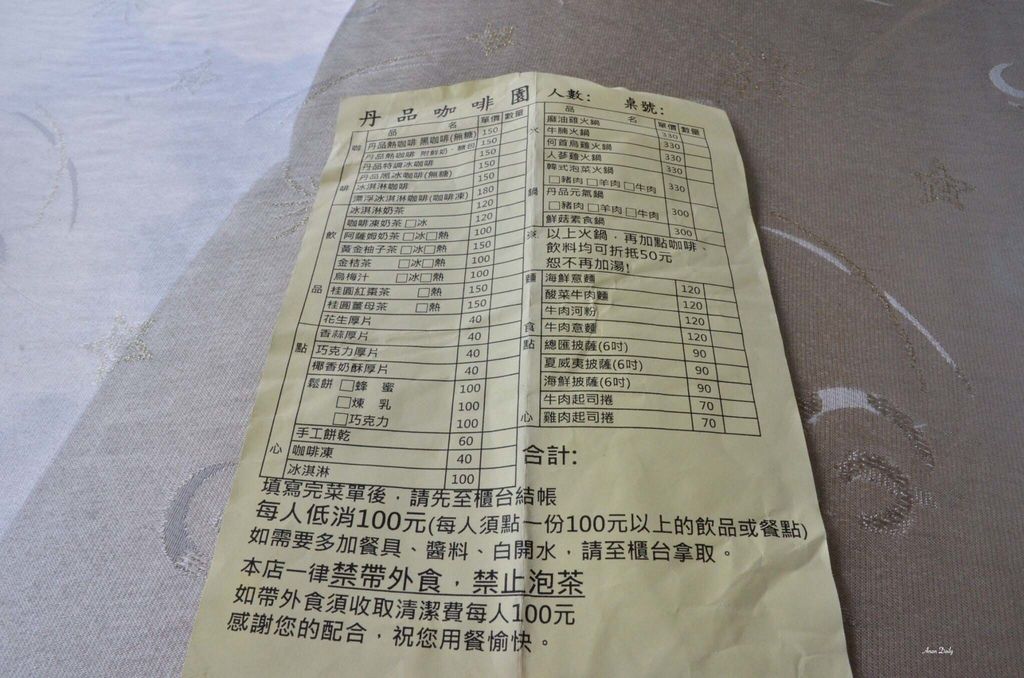 丹品咖啡園 人數: 桌號:
品 名 單價 數量
咖啡飲品
丹品熱咖啡 黑咖啡(無糖) 150
丹品熱咖啡 附鮮奶、糖包 150
丹品特調冰咖啡 150
丹品黑冰咖啡(無糖) 150
冰淇淋咖啡 150
漂浮冰淇淋咖啡(咖啡凍) 180
冰淇淋奶茶 120
咖啡凍奶茶 □冰 120
阿薩姆奶茶 □冰□熱 100
黃金柚子茶 □冰□熱 150
金桔茶 □冰□熱 100
烏梅汁 □冰□熱 100
桂圓紅棗茶 □熱 150
桂圓薑母茶 □熱 150
點心
花生厚片 40
香蒜厚片 40
巧克力厚片 40
椰香奶酥厚片 40
鬆餅 □蜂 蜜 100
□煉 乳 100
□巧克力 100
手工餅乾 60
咖啡凍 40
冰淇淋 100
品 名 單價 數量
火鍋類
麻油雞火鍋 330
牛腩火鍋 330
何首烏雞火鍋 330
人蔘雞火鍋 330
韓式泡菜火鍋
□豬肉 □羊肉 □牛肉 330
丹品元氣鍋
□豬肉 □羊肉 □牛肉 300
鮮菇素食鍋 300
以上火鍋，再加點咖啡、
飲料均可折抵50元
恕不再加湯!
麵食點心
海鮮意麵 120
酸菜牛肉麵 120
牛肉河粉 120
牛肉意麵 120
總匯披薩(6吋) 90
夏威夷披薩(6吋) 90
海鮮披薩(6吋) 90
牛肉起司捲 70
雞肉起司捲 70
合計:
填寫完菜單後，請先至櫃台結帳
每人低消100元(每人須點一份100元以上的飲品或餐點)
如需要多加餐具、醬料、白開水，請至櫃台拿取。
本店一律禁帶外食，禁止泡茶
如帶外食須收取清潔費每人100元
感謝您的配合，祝您用餐愉快。
Anan Daily